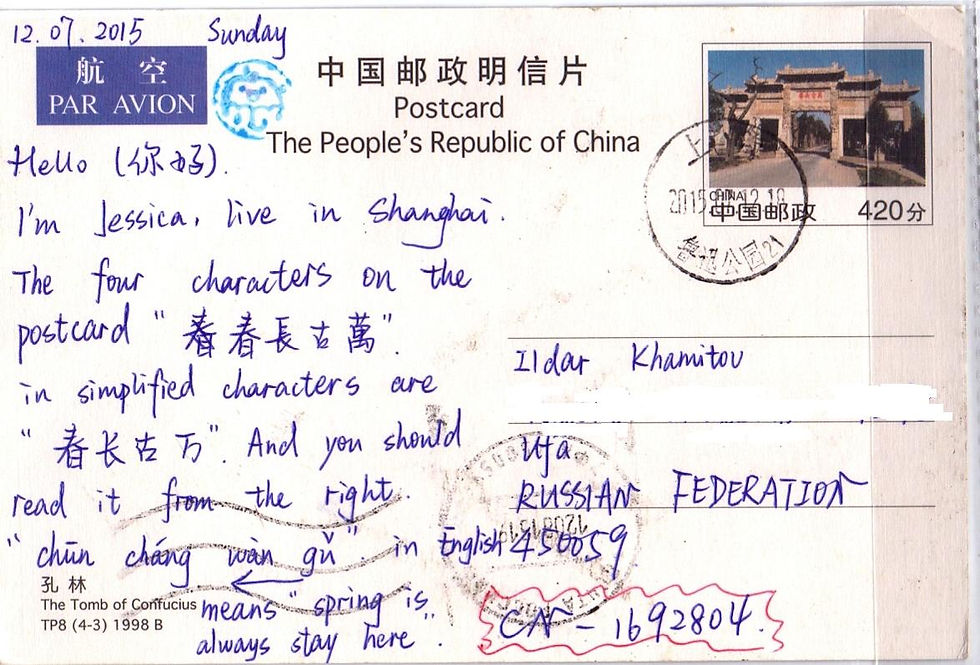 12.07.2015 Sunday
航 空
PAR AVION
中国邮政明信片
Postcard
The People's Republic of China
CHINA
中国邮政 420分
上
2015
公园21
Hello (你好).
I'm Jessica, live in Shanghai.
The four characters on the
postcard "春長古萬".
in simplified characters are
"春长古万". And you should
read it from the right.
"chūn cháng wàn gǔ". in English
means "spring is
always stay here".
孔 林
The Tomb of Confucius
TP8 (4-3) 1998 B
Ildar Khamitov
Ufa
RUSSIAN FEDERATION
450059
CN - 1692804.